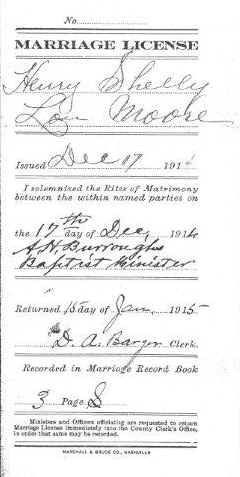 No.
MARRIAGE LICENSE
Henry Shelly
Lou Moore
Issued Dec 17 1914
I solemnized the Rites of Matrimony
between the within named parties on
the 17th day of Dec, 1914
A. H. Burroughs
Baptist Minister
Returned 15 day of Jan, 1915
D. A. Barger Clerk.
Recorded in Marriage Record Book
3 Page 8
Ministers and Officers officiating are requested to return
Marriage License immediately into the County Clerk's Office,
in order that same may be recorded.
MARSHALL & BRUCE CO., NASHVILLE